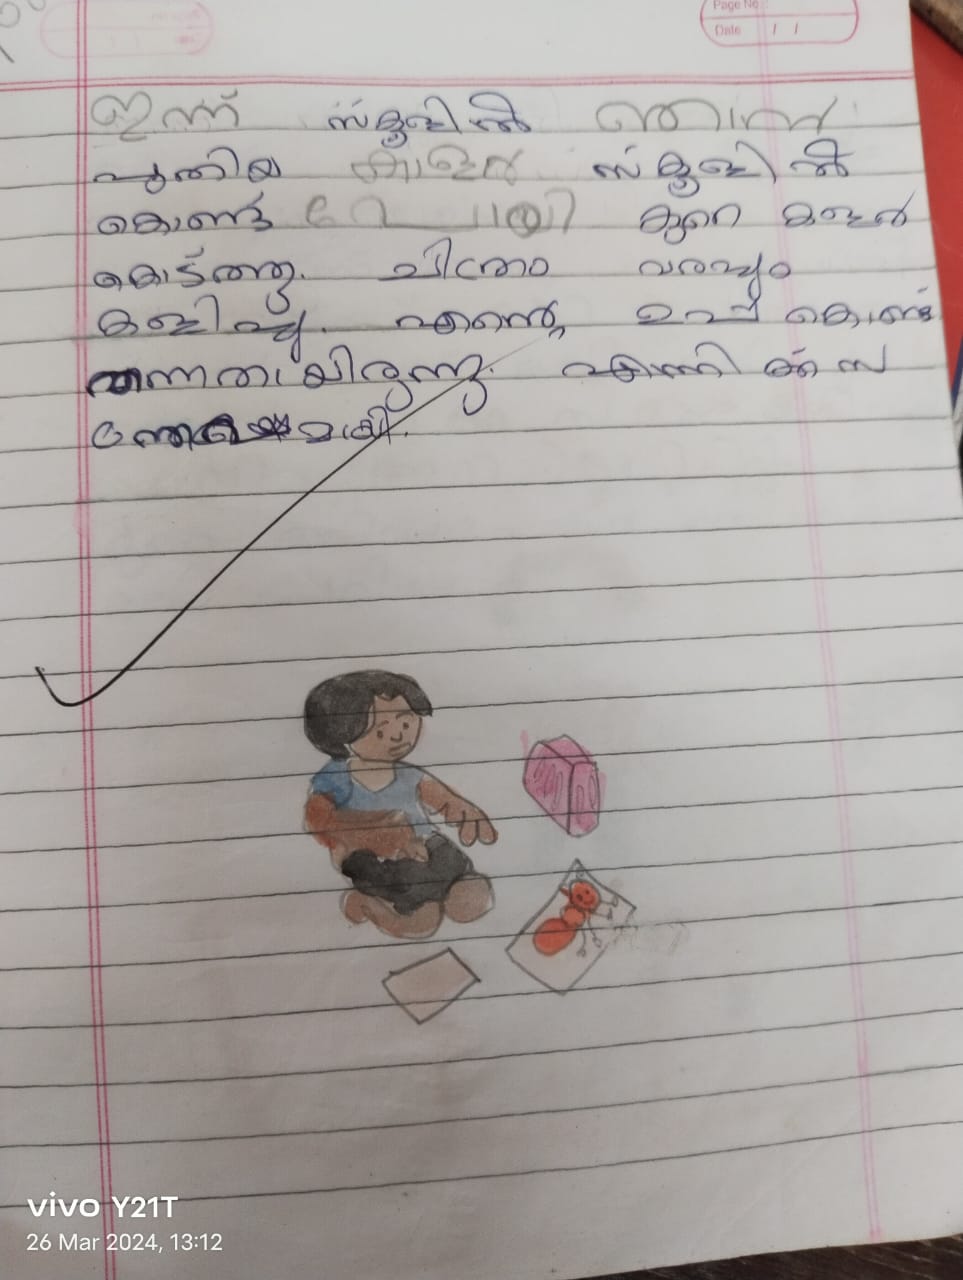 Page No
Date / /
ഇന്ന് സ്കൂളിൽ ഞാൻ
പുതിയ കളർ സ്കൂളിൽ
കൊണ്ട് പോയി കുറെ കളർ
കൊടുത്തു. ചിത്രം വരച്ചും
കളിച്ചു. എന്റെ ഉപ്പ കൊണ്ട്
തന്നതായിരുന്നു. എനിക്ക് സ
ന്തോഷമായി.
vivo Y21T
26 Mar 2024, 13:12